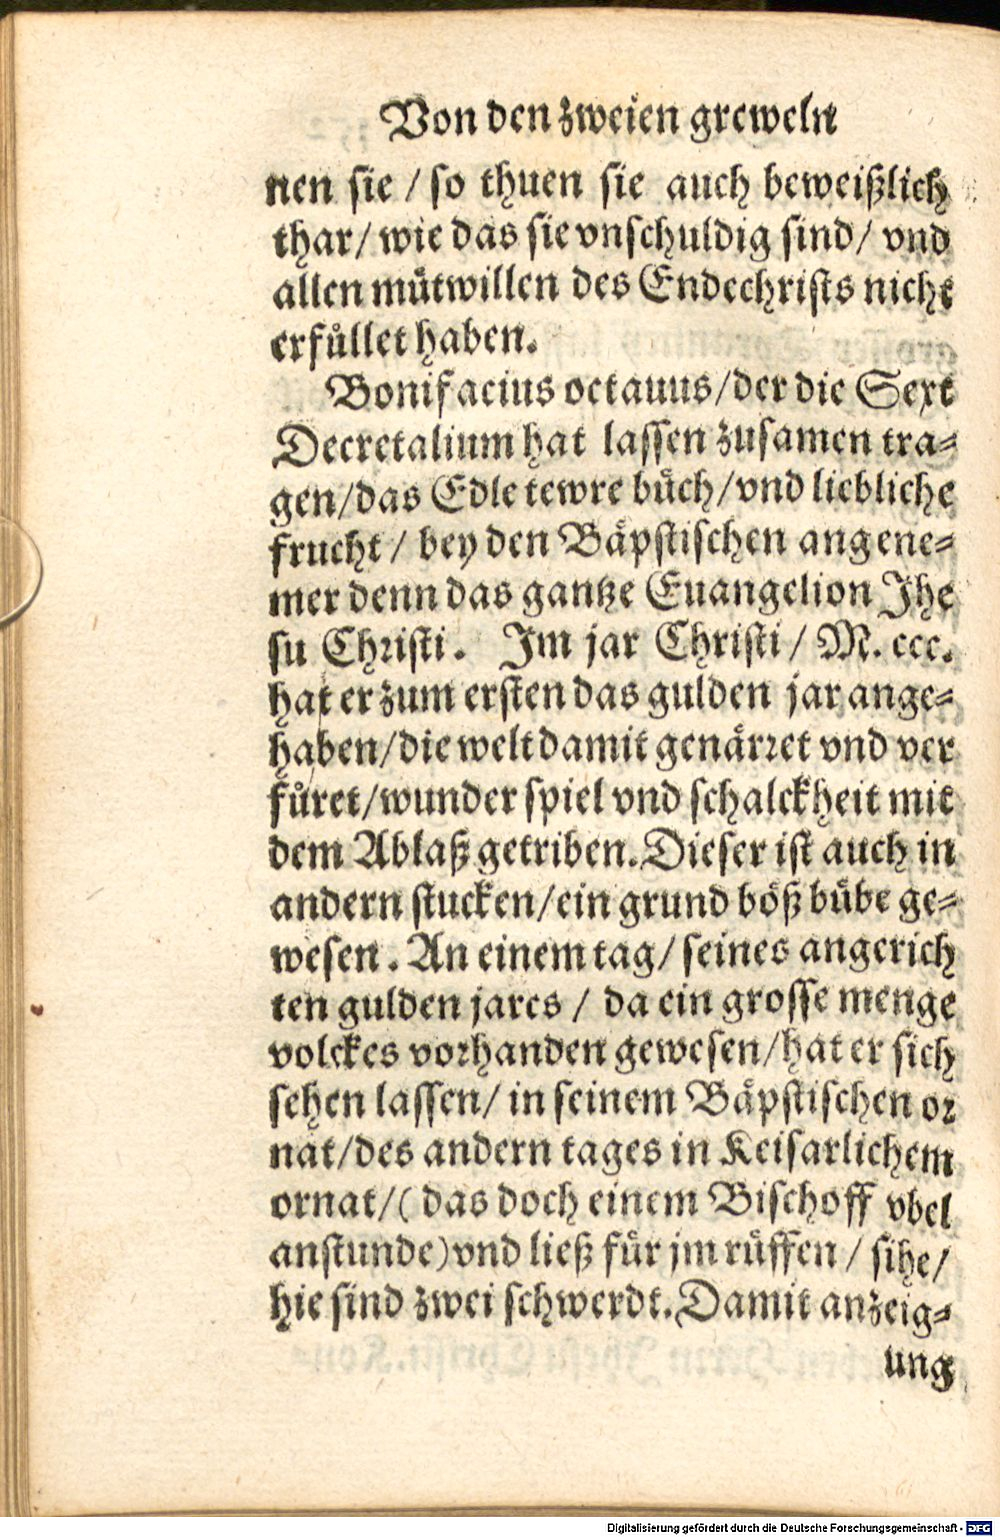 Von den zweien greweln
nen sie / so thuen sie auch beweißlich
thar / wie das sie vnschuldig sind / vnd
allen mütwillen des Endechrists nicht
erfüllet haben.
Bonifacius octauus / der die Sext
Decretalium hat lassen zusamen tra⸗
gen / das Edle tewre büch / vnd liebliche
frucht / bey den Bäpstischen angene⸗
mer denn das gantze Euangelion Jhe
su Christi. Im jar Christi / M. ccc.
hat er zum ersten das gulden jar ange⸗
haben / die welt damit genärret vnd ver
füret / wunder spiel vnd schalckheit mit
dem Ablaß getriben. Dieser ist auch in
andern stucken / ein grund böß bübe ge⸗
wesen. An einem tag / seines angerich
ten gulden jares / da ein grosse menge
volckes vorhanden gewesen / hat er sich
sehen lassen / in seinem Bäpstischen or
nat / des andern tages in Keisarlichem
ornat / ( das doch einem Bischoff vbel
anstunde) vnd ließ für jm rüffen / sihe /
hie sind zwei schwerdt. Damit anzeig⸗
ung
Digitalisierung gefördert durch die Deutsche Forschungsgemeinschaft - DFG